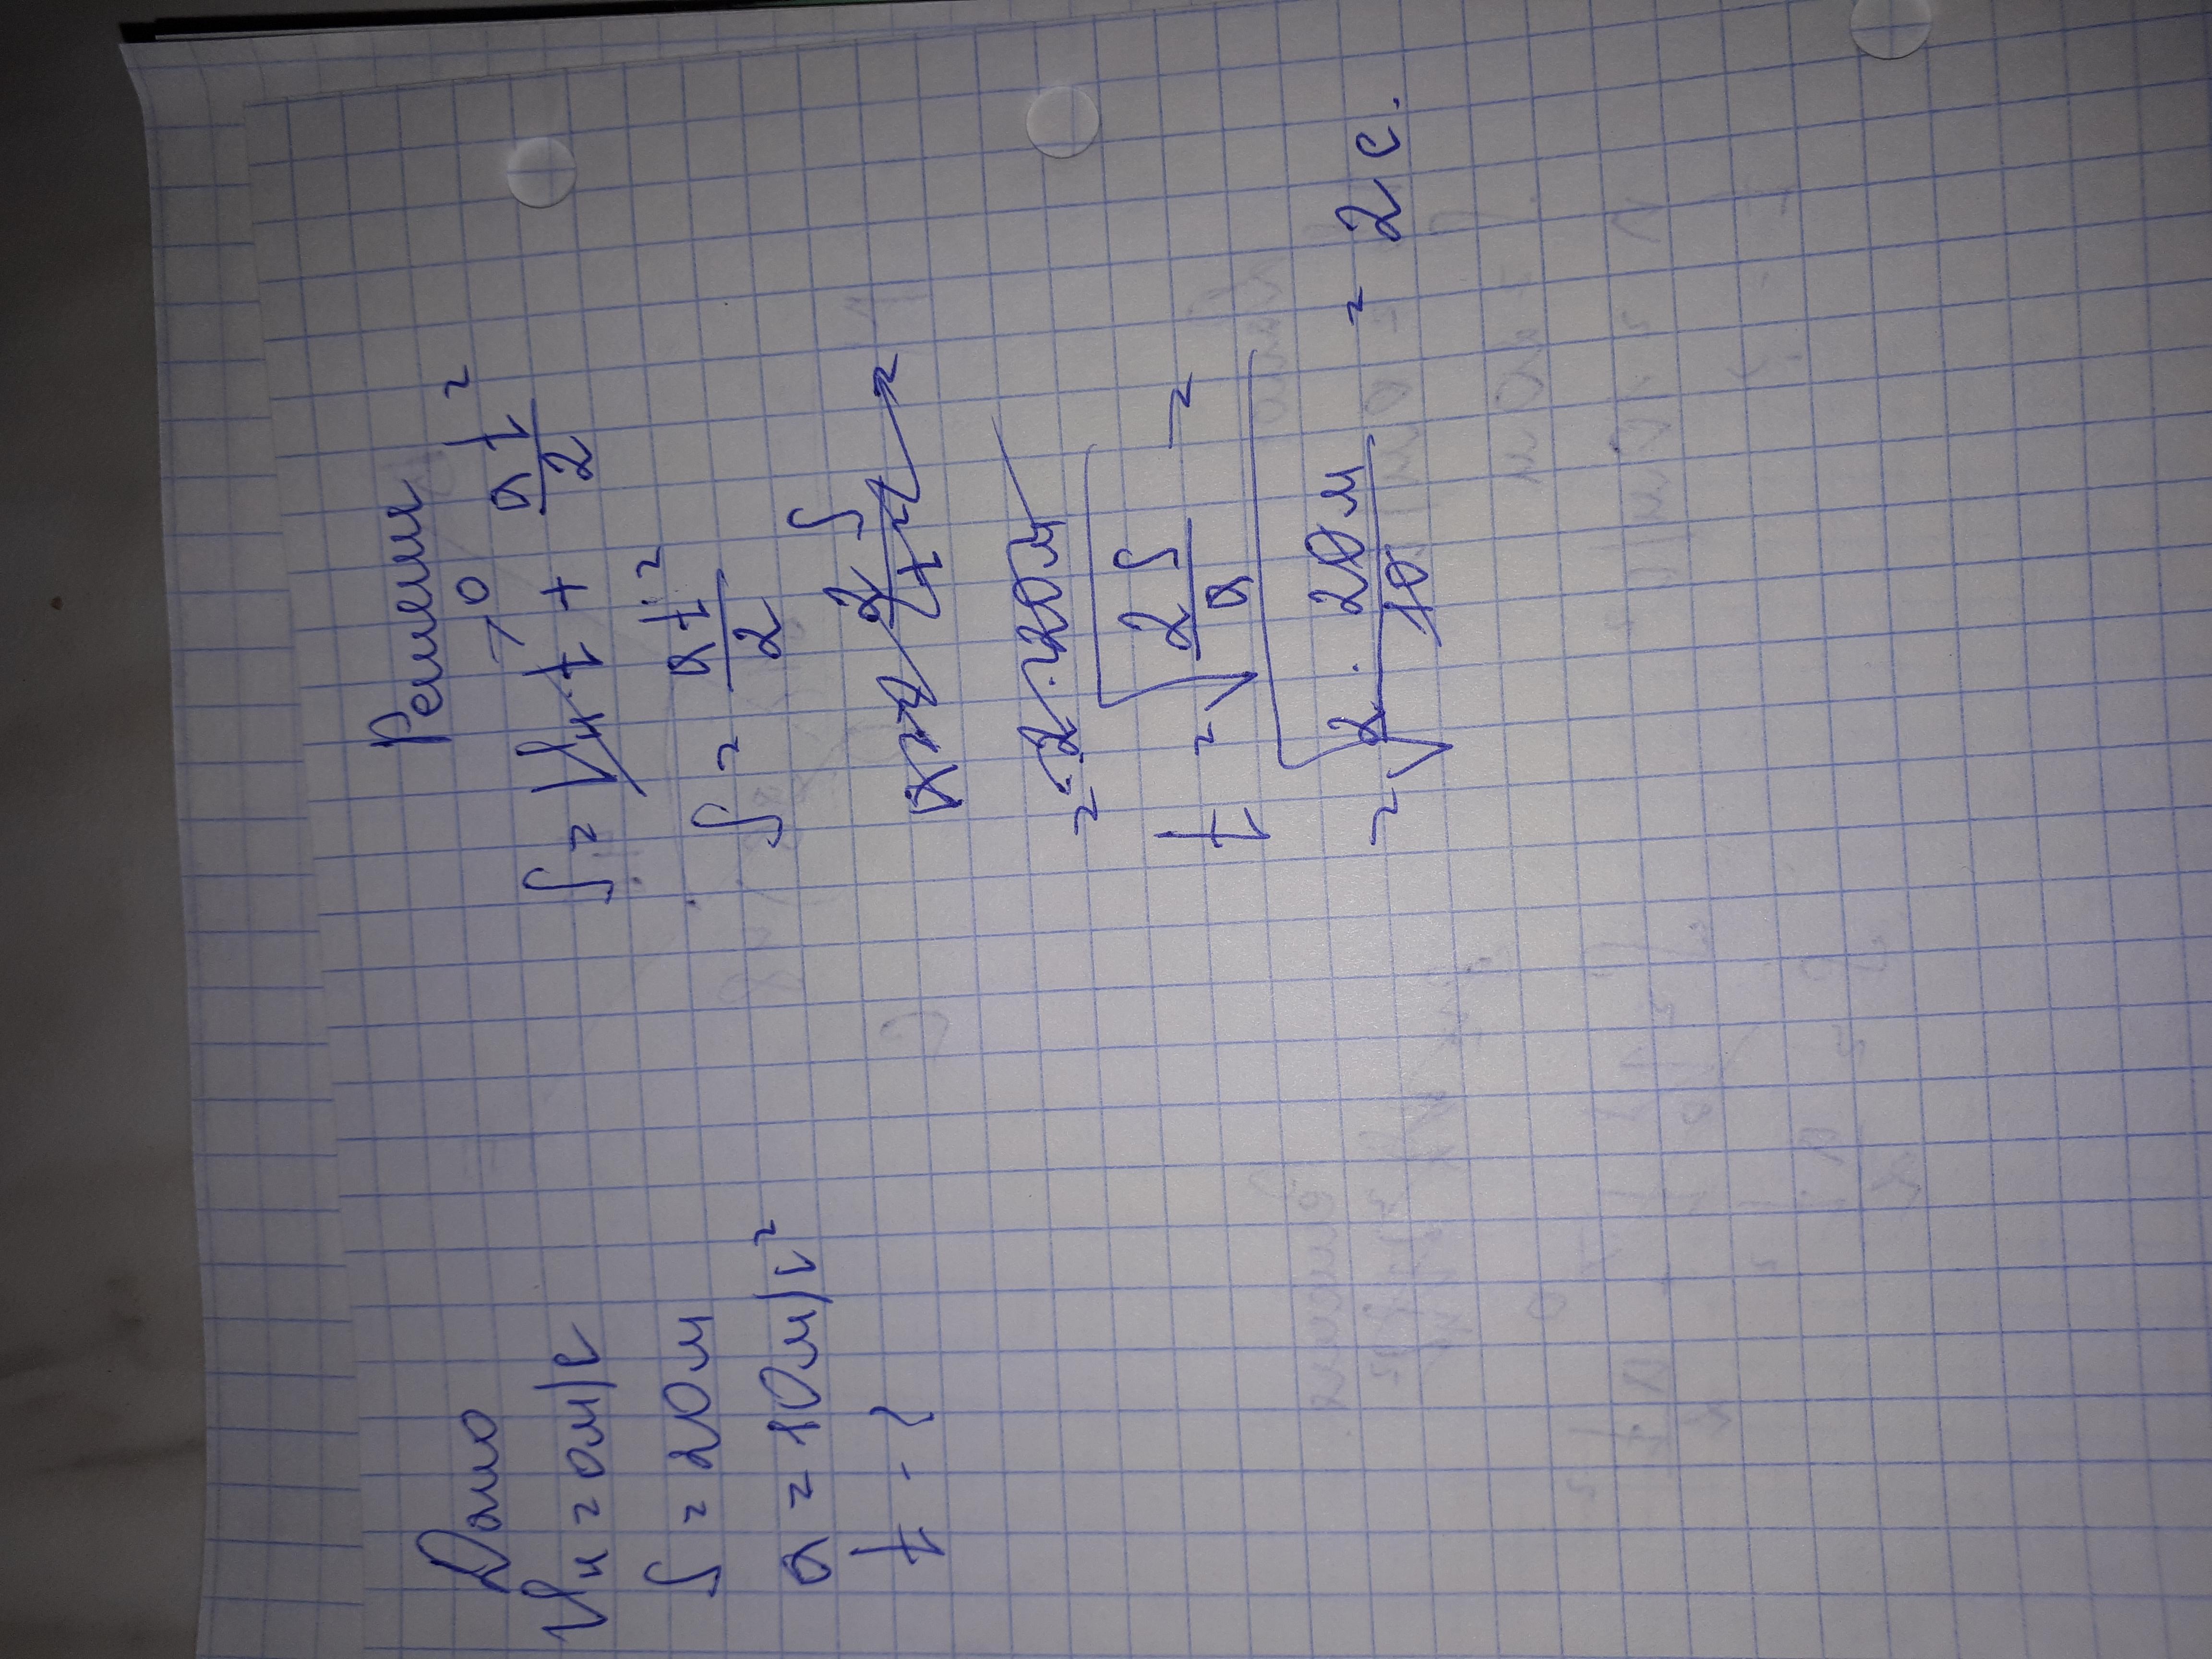 Дано
Vн = 0м/с
S = 20м
a = 10м/с²
t - ?
Решение
S = Vн·t + at²/2
→0
S = at²/2
t = √(2S/a) =
= √(2·20м/10) = 2с.